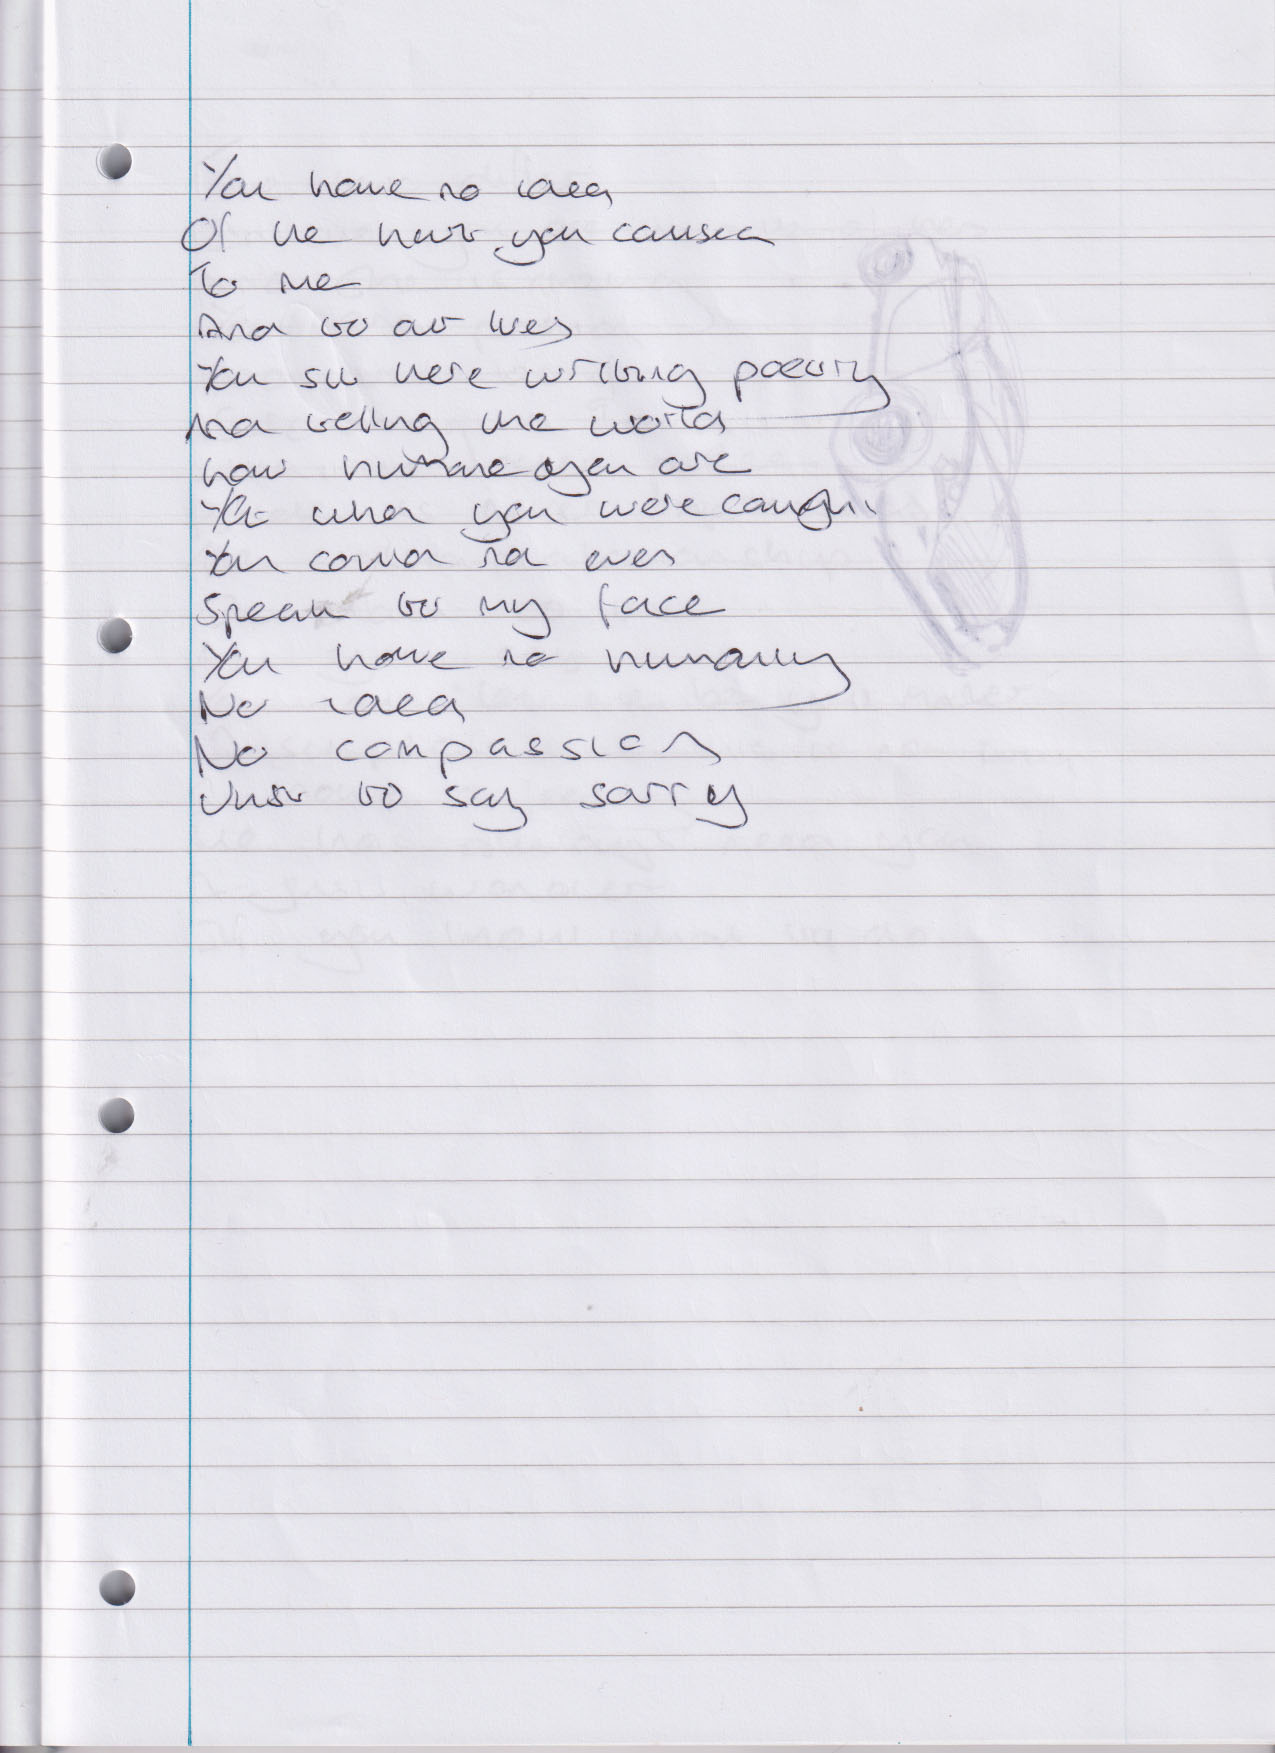 You have no idea
Of the hurt you caused
To me
And to our lives
You sit here writing poetry
And telling the world
how humane you are
Yet when you were caught
You could not even
Speak to my face
You have no humanity
No idea
No compassion
Just to say sorry